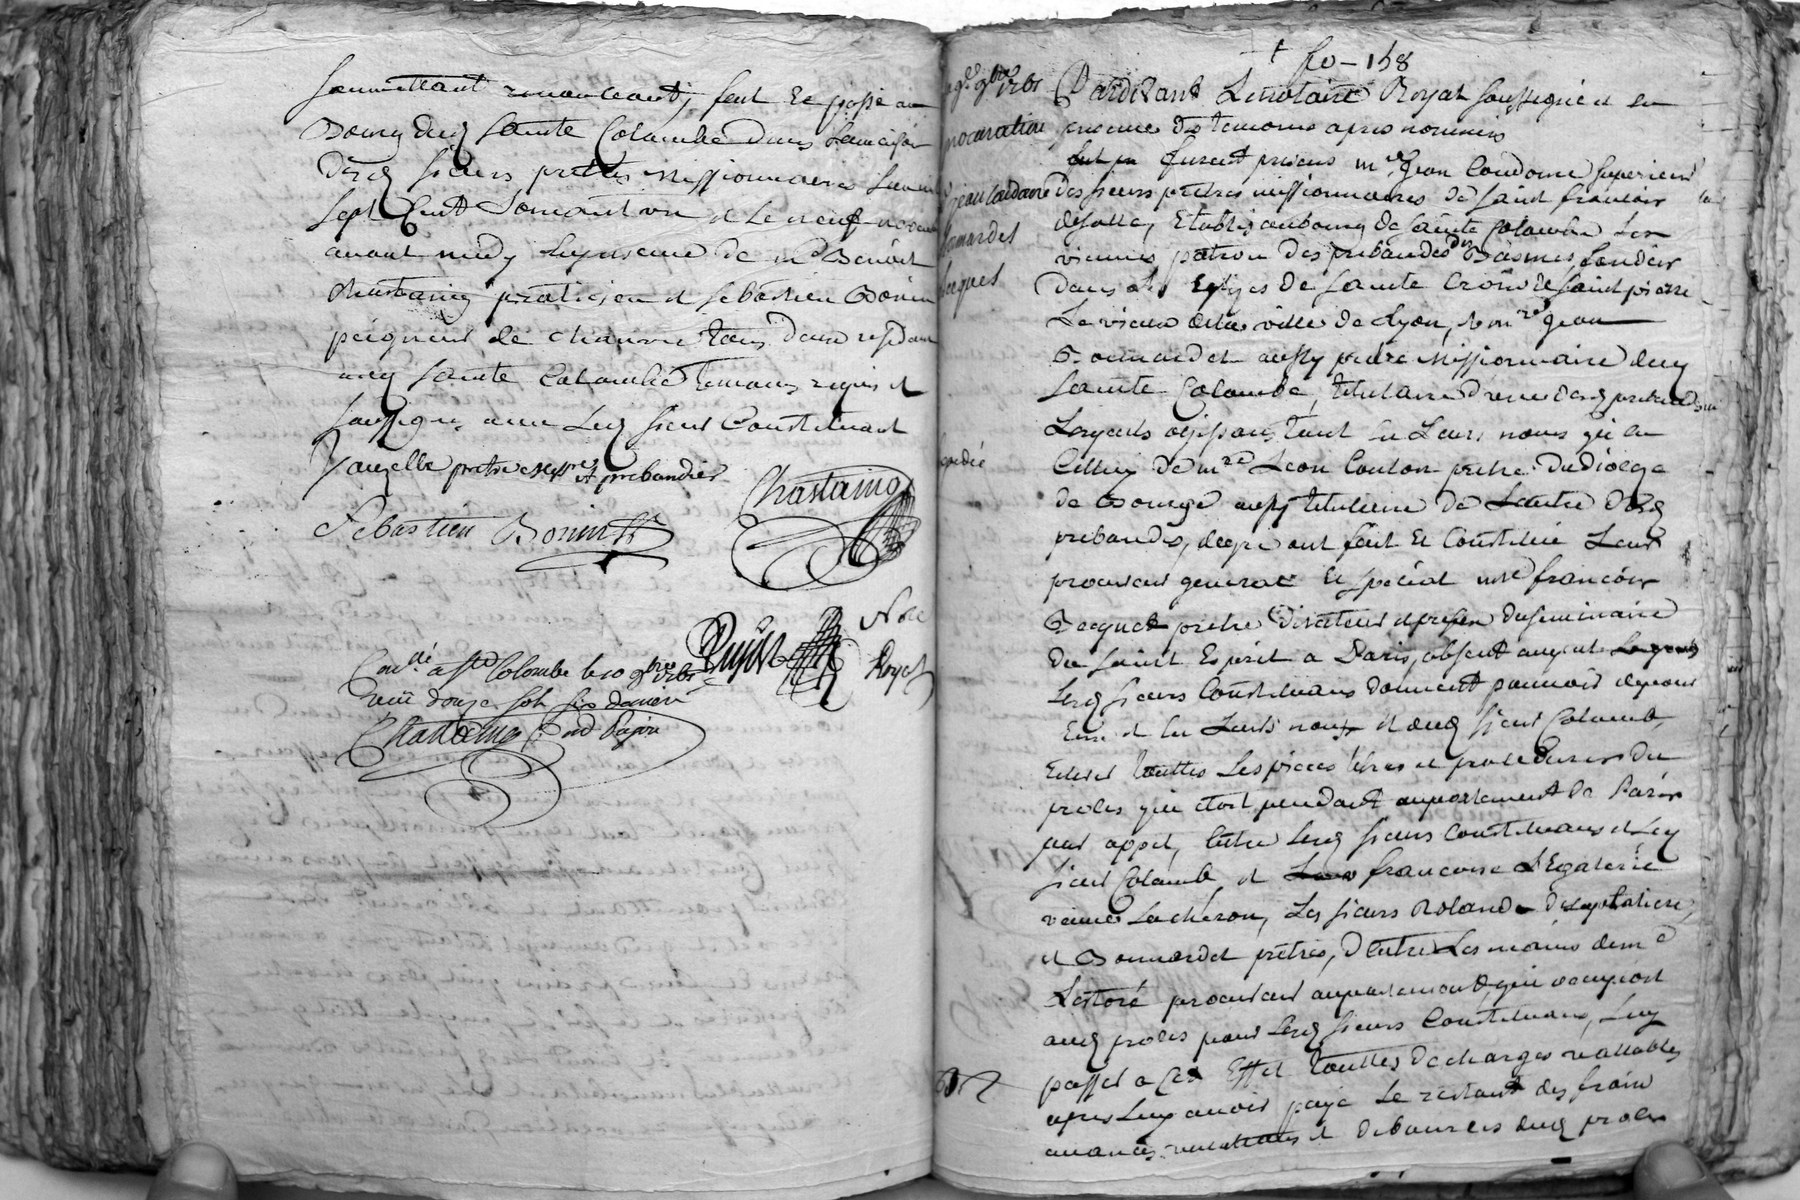 soumettant renonceant, fait et passé au
Bourg dud sainte Colombe dans la maison
desd sieurs prêtres missionnaires l'an mil
sept cent soixante un et le neuf novembre
avant midy en presence de me Benoit
Chastaing praticien et sebastien Bonin
peigneur de chanvre tous deux residant
aud sainte Colombe temoins requis et
soussignes avec led sieur Constituant
prêtre et prebandier
Chastaing
Sebastien Bonin
Nore
Royal
Conllé a Ste Colombe le 10 9bre 1761
Reçu douze sols six deniers
Chastaing
fo - 158
9e 9bre 1761
procuration
Jean Condomine
Bonnardet
Becquet
expedié
Pardevant Le notaire Royal soussigné et en
presence des temoins apres nommés
furent presens mre Jean Condomine superieur
des sieurs prêtres missionnaires de saint francois
de salle, Etablis au bourg de sainte Colombe Les
vienne, patron des prebandes des Basmes, fondées
dans les Eglises de sainte Croix et saint pierre
Le vieux de la ville de Lyon, & mre Jean
Bonnardet aussy prêtre Missionnaire dud
sainte Colombe, titulaire d'une desd prebandes
Lesquels agissans tant en Leurs noms qu'en
Celluy de mre Leon Couton prêtre du diocèze
de Bourge aussy titulaire de Lautre desd
prebandes, de gre ont fait et Constitué Leur
procureur general et special mre francois
Becquet prêtre Directeur du seminaire
du saint Esprit a Paris, absent auquel
Lesd sieurs Constituans donnent pouvoir de pour
Eux et en Leurs noms et dud sieur
Retirer touttes Les pieces titres et procedures du
procès qui étoit pendant au parlement de Paris
par appel, entre Lesd sieurs Constituans et Led
sieur et francoise
veuve Lacheron, Les sieurs Roland
et Bonnardet prêtres, D'entre Les mains de me
Lestoré procureur au parlement qui occupoit
aud procès pour Lesd sieurs Constituans, Luy
passer a cet Effet touttes decharges vallables
apres Luy avoir payé Le restant des frais
avances vacations et debourcés dud procès